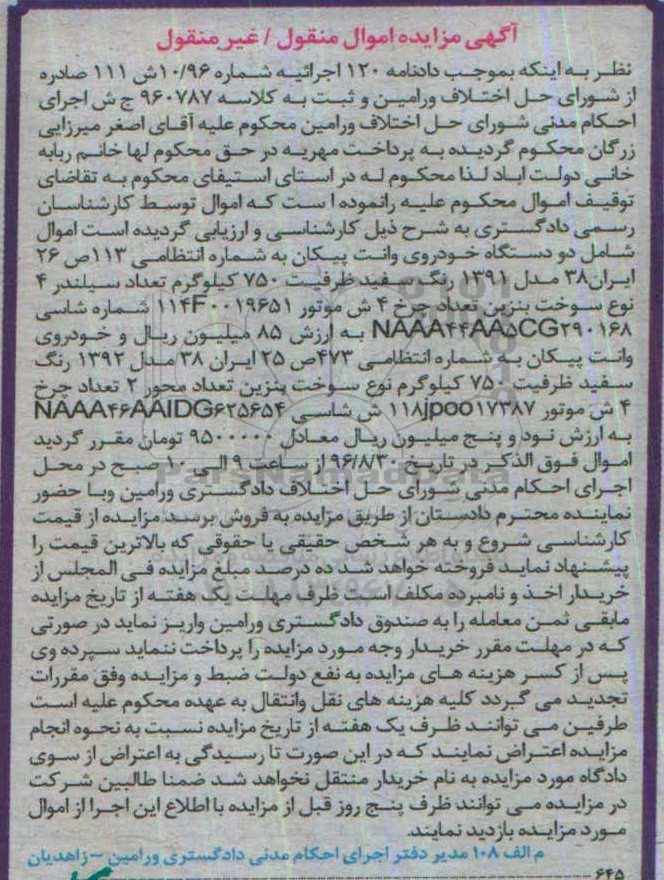 آگهی مزایده اموال منقول / غیر منقول
نظر به اینکه بموجب دادنامه ۱۲۰ اجرائیه شماره ۱۰/۹۶ش ۱۱۱ صادره
از شورای حل اختلاف ورامین و ثبت به کلاسه ۹۶۰۷۸۷ ج ش اجرای
احکام مدنی شورای حل اختلاف ورامین محکوم علیه آقای اصغر میرزایی
زرگان محکوم گردیده به پرداخت مهریه در حق محکوم لها خانم ربابه
خانی دولت اباد لذا محکوم له در استای استیفای محکوم به تقاضای
توقیف اموال محکوم علیه رانموده ا ست که اموال توسط کارشناسان
رسمی دادگستری به شرح ذیل کارشناسی و ارزیابی گردیده است اموال
شامل دو دستگاه خودروی وانت پیکان به شماره انتظامی ۱۱۳ص ۲۶
ایران۳۸ مدل ۱۳۹۱ رنگ سفید ظرفیت ۷۵۰ کیلوگرم تعداد سیلندر ۴
نوع سوخت بنزین تعداد چرخ ۴ ش موتور ۱۱۴F۰۰۱۹۶۵۱ شماره شاسی
NAAA۴۴AA۵CG۲۹۰۱۶۸ به ارزش ۸۵ میلیون ریال و خودروی
وانت پیکان به شماره انتظامی ۴۷۳ص ۲۵ ایران ۳۸ مدل ۱۳۹۲ رنگ
سفید ظرفیت ۷۵۰ کیلوگرم نوع سوخت بنزین تعداد محور ۲ تعداد چرخ
۴ ش موتور ۱۱۸jpoo۱۷۳۸۷ ش شاسی NAAA۴۶AAIDG۶۲۵۶۵۴
به ارزش نود و پنج میلیون ریال معادل ۹۵۰۰۰۰۰ تومان مقرر گردید
اموال فوق الذکر در تاریخ ۹۶/۸/۳۰ از ساعت ۹ الی ۱۰ صبح در محل
اجرای احکام مدنی شورای حل اختلاف دادگستری ورامین وبا حضور
نماینده محترم دادستان از طریق مزایده به فروش برسد مزایده از قیمت
کارشناسی شروع و به هر شخص حقیقی یا حقوقی که بالاترین قیمت را
پیشنهاد نماید فروخته خواهد شد ده درصد مبلغ مزایده فی المجلس از
خریدار اخذ و نامبرده مکلف است ظرف مهلت یک هفته از تاریخ مزایده
مابقی ثمن معامله را به صندوق دادگستری ورامین واریز نماید در صورتی
که در مهلت مقرر خریدار وجه مورد مزایده را پرداخت ننماید سپرده وی
پس از کسر هزینه های مزایده به نفع دولت ضبط و مزایده وفق مقررات
تجدید می گردد کلیه هزینه های نقل وانتقال به عهده محکوم علیه است
طرفین می توانند ظرف یک هفته از تاریخ مزایده نسبت به نحوه انجام
مزایده اعتراض نمایند که در این صورت تا رسیدگی به اعتراض از سوی
دادگاه مورد مزایده به نام خریدار منتقل نخواهد شد ضمنا طالبین شرکت
در مزایده می توانند ظرف پنج روز قبل از مزایده با اطلاع این اجرا از اموال
مورد مزایده بازدید نمایند.
م الف ۱۰۸ مدیر دفتر اجرای احکام مدنی دادگستری ورامین – زاهدیان
۶۴۵
ParsNamadData